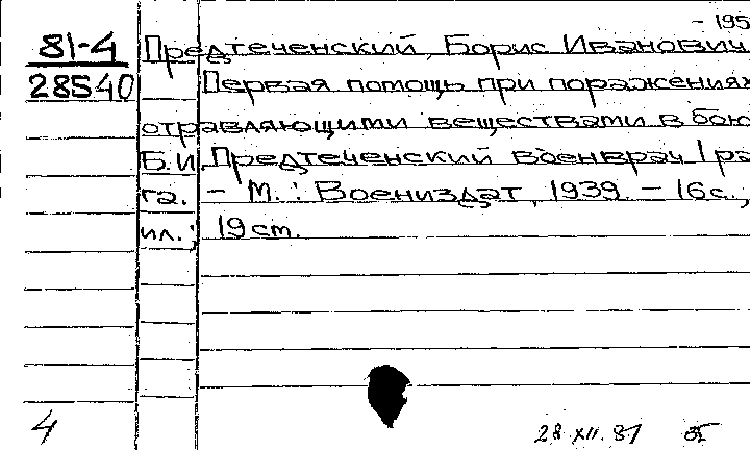 - 195
81-4 Предтеченский, Борис Иванович
28540 Первая помощь при поражениях
отравляющими веществами в бою
Б.И. Предтеченский военврач I ра
га. - М.: Воениздат, 1939. - 16 с.,
ил.; 19 cm.
4 28.XII.81